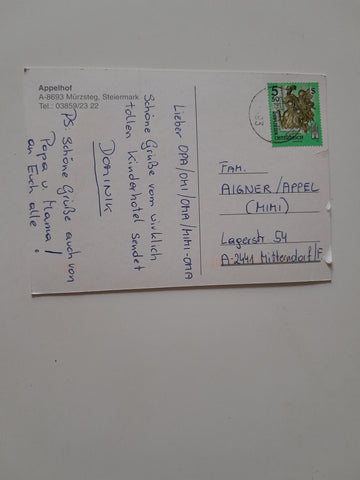 Appelhof
A-8693 Mürzsteg, Steiermark
Tel.: 03859/23 22
Lieber OPA/OMI/OMA/MIMI-OMA
Schöne Grüße vom wirklich
tollen Kinderhotel sendet
DOMINIK
PS: Schöne Grüße auch von
Papa u. Mama /
an Euch alle!
5 50
S
FAM.
AIGNER/APPEL
(MIMI)
Lagerstr 54
A-2441 Mitterndorf/F